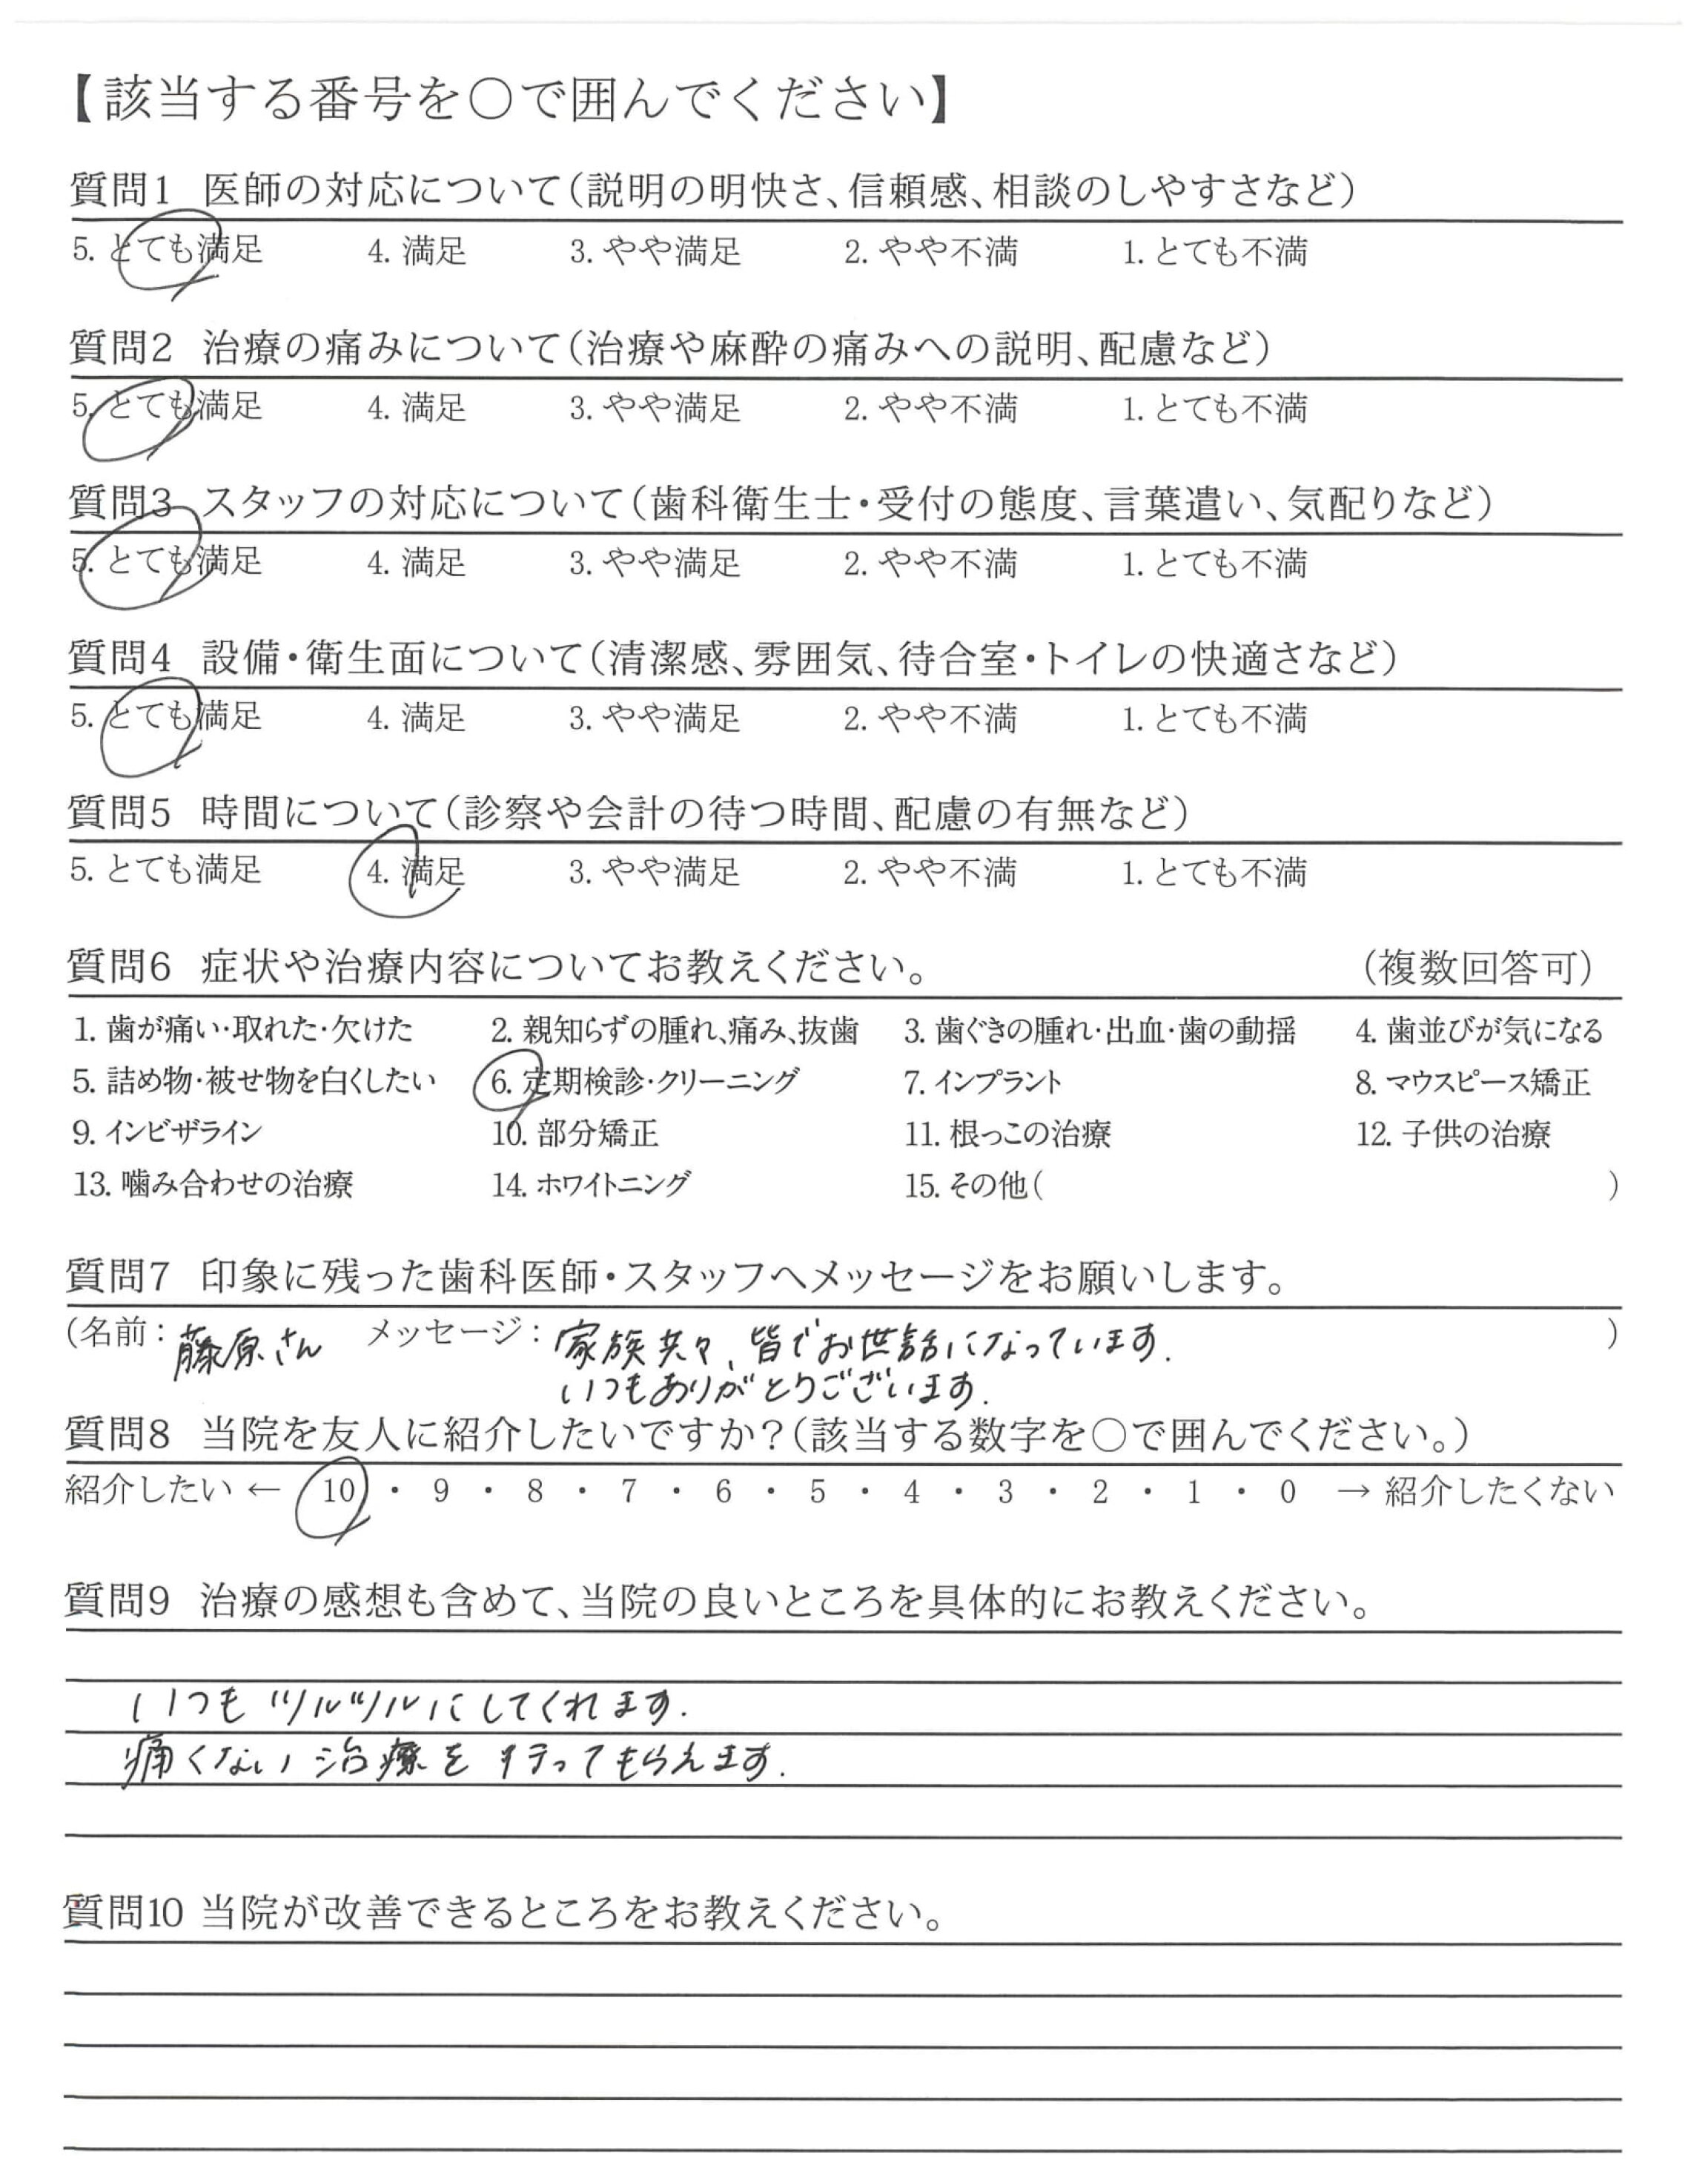 【該当する番号を〇で囲んでください】
質問1 医師の対応について(説明の明快さ、信頼感、相談のしやすさなど)
5. とても満足 4. 満足 3. やや満足 2. やや不満 1. とても不満
質問2 治療の痛みについて(治療や麻酔の痛みへの説明、配慮など)
5. とても満足 4. 満足 3. やや満足 2. やや不満 1. とても不満
質問3 スタッフの対応について(歯科衛生士・受付の態度、言葉遣い、気配りなど)
5. とても満足 4. 満足 3. やや満足 2. やや不満 1. とても不満
質問4 設備・衛生面について(清潔感、雰囲気、待合室・トイレの快適さなど)
5. とても満足 4. 満足 3. やや満足 2. やや不満 1. とても不満
質問5 時間について(診察や会計の待つ時間、配慮の有無など)
5. とても満足 4. 満足 3. やや満足 2. やや不満 1. とても不満
質問6 症状や治療内容についてお教えください。 (複数回答可)
1. 歯が痛い・取れた・欠けた 2. 親知らずの腫れ、痛み、抜歯 3. 歯ぐきの腫れ・出血・歯の動揺 4. 歯並びが気になる
5. 詰め物・被せ物を白くしたい 6. 定期検診・クリーニング 7. インプラント 8. マウスピース矯正
9. インビザライン 10. 部分矯正 11. 根っこの治療 12. 子供の治療
13. 噛み合わせの治療 14. ホワイトニング 15. その他( )
質問7 印象に残った歯科医師・スタッフへメッセージをお願いします。
(名前: 藤原さん メッセージ: 家族共々、皆でお世話になっています. )
いつもありがとうございます.
質問8 当院を友人に紹介したいですか?(該当する数字を〇で囲んでください。)
紹介したい ← 10 ・ 9 ・ 8 ・ 7 ・ 6 ・ 5 ・ 4 ・ 3 ・ 2 ・ 1 ・ 0 → 紹介したくない
質問9 治療の感想も含めて、当院の良いところを具体的にお教えください。
いつもツルツルにしてくれます.
痛くない治療を行ってもらえます.
質問10 当院が改善できるところをお教えください。